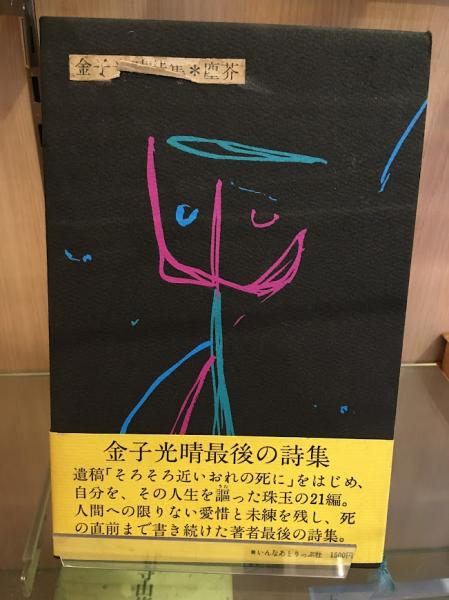 金子光晴詩集＊塵芥
金子光晴最後の詩集
遺稿「そろそろ近いおれの死に」をはじめ、
自分を、その人生を謳った珠玉の21編。
人間への限りない愛惜と未練を残し、死
の直前まで書き続けた著者最後の詩集。
■いんなあとりっぷ社 1500円